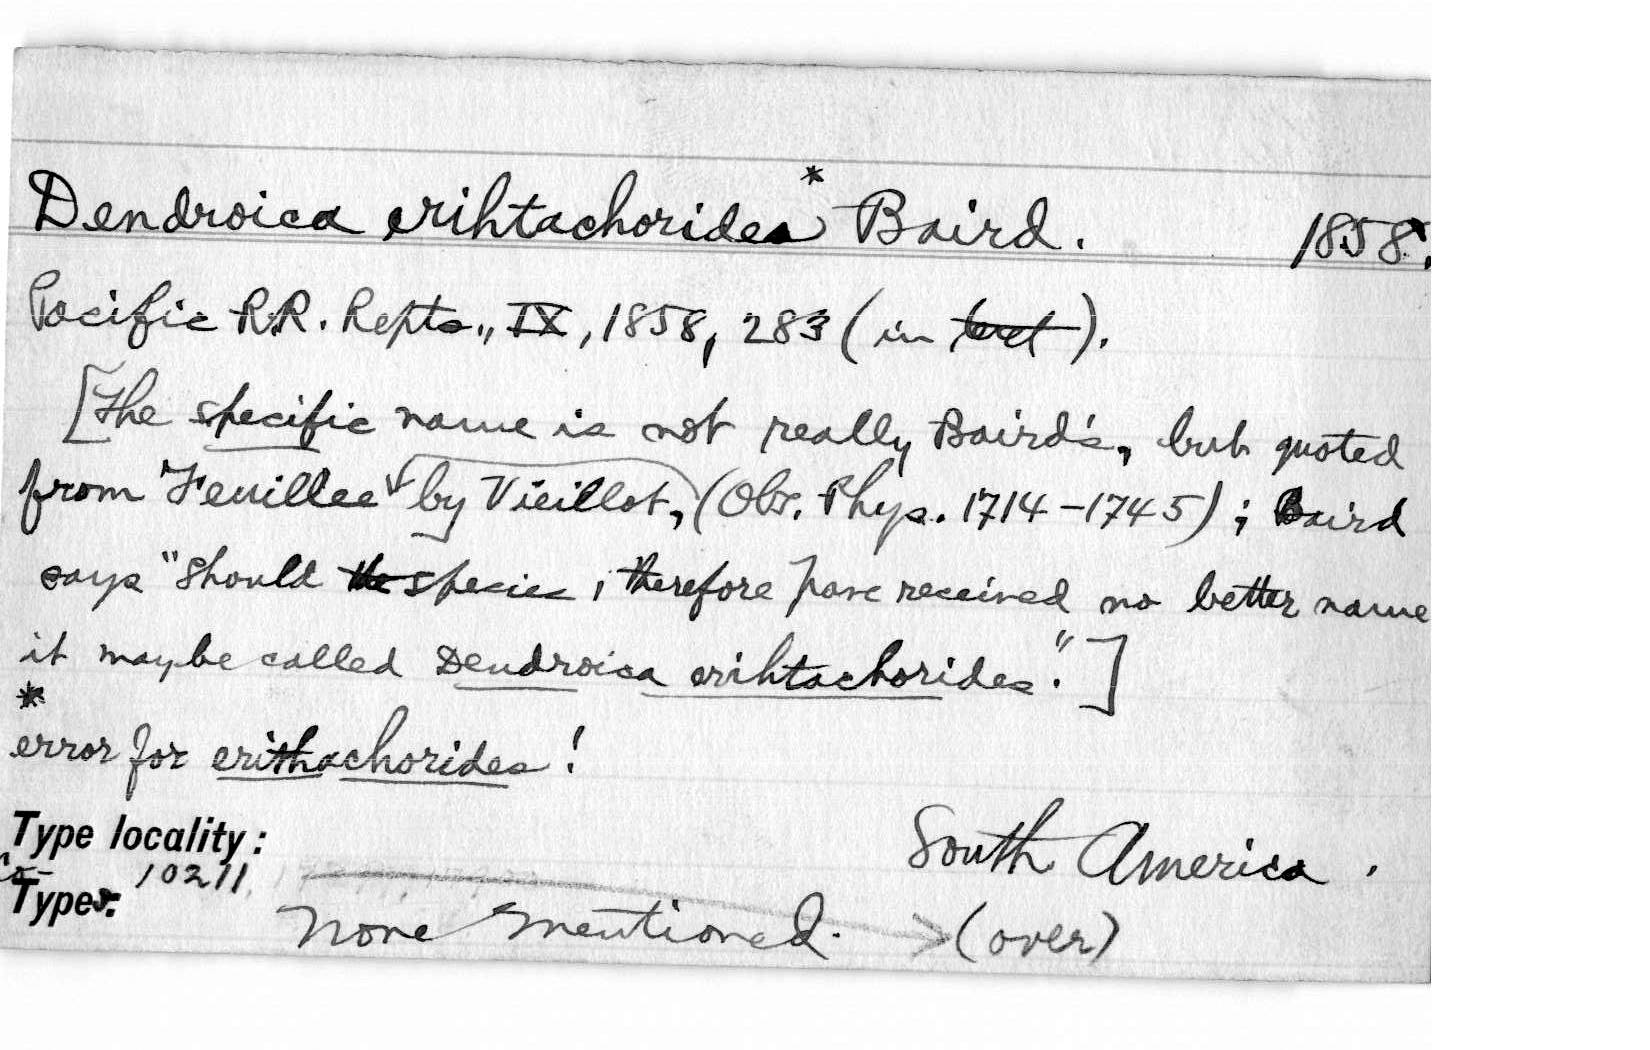 Dendroica erihtachorides* Baird. 1858.
Pacific R.R. Repts., IX, 1858, 283 (in text).
[The specific name is not really Baird's, but quoted
from Feuillee by Vieillot, (Obs. Phys. 1714-1745); Baird
says "Should the species, therefore have received no better name
it may be called Dendroica erihtachorides."]
*
error for erithachorides!
Type locality: South America.
Types: 10211.
None mentioned. → (over)